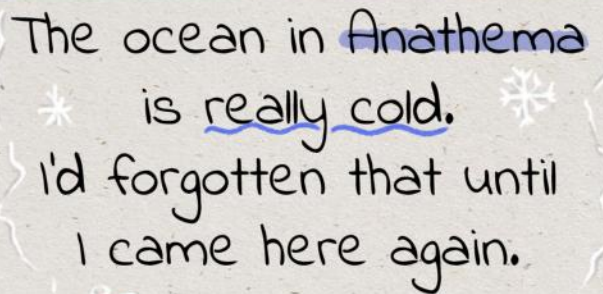 The ocean in Anathema
is really cold.
I'd forgotten that until
I came here again.